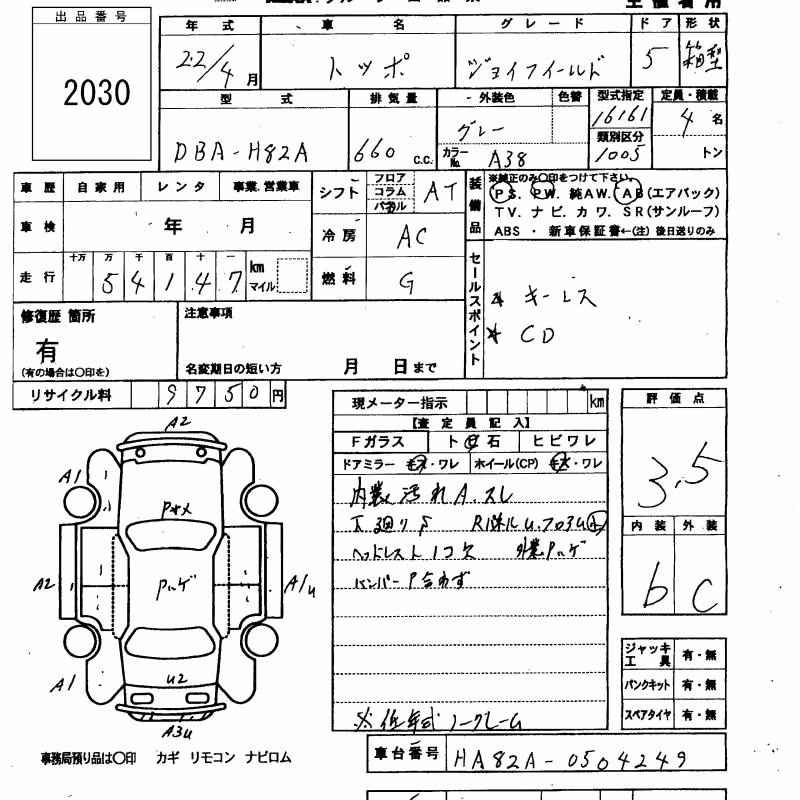 出品番号
2030
年 式
車 名
グレード
ドア
形状
22/4月
トッポ
ジョイフィールド
5
箱型
型 式
排気量
外装色
色替
型式指定
定員・積載
DBA-H82A
660 C.C.
グレー
カラーNo. A38
16161
類別区分
1005
4名
トン
車歴 自家用 レンタ 事業.営業車
車検 年 月
走行 十万 万 千 百 十 一
5 4 1 4 7 km マイル
シフト フロア コラム パネル AT
冷房 AC
燃料 G
装備品
※純正のみ○印をつけて下さい。
PS. PW. 純AW. AB(エアバック)
TV. ナビ. カワ. SR(サンルーフ)
ABS ・ 新車保証書←(注) 後日送りのみ
セールスポイント
キーレス
CD
修復歴 箇所
有
(有の場合は○印を)
注意事項
名変期日の短い方 月 日まで
リサイクル料 9750円
現メーター指示 km
【査定員記入】
Fガラス ト石 ヒビワレ
ドアミラー キズ・ワレ ホイール(CP) キズ・ワレ
内装 汚れ A.スレ
ヘッドレスト 1コ欠
バンパー P合わず
※低年式ノークレーム
評価点
3.5
内装 外装
b C
ジャッキ工具 有・無
パンクキット 有・無
スペアタイヤ 有・無
A2
A1
A2
A1
A/u
u2
A3u
事務局預り品は○印 カギ リモコン ナビロム
車台番号 HA82A-0504249